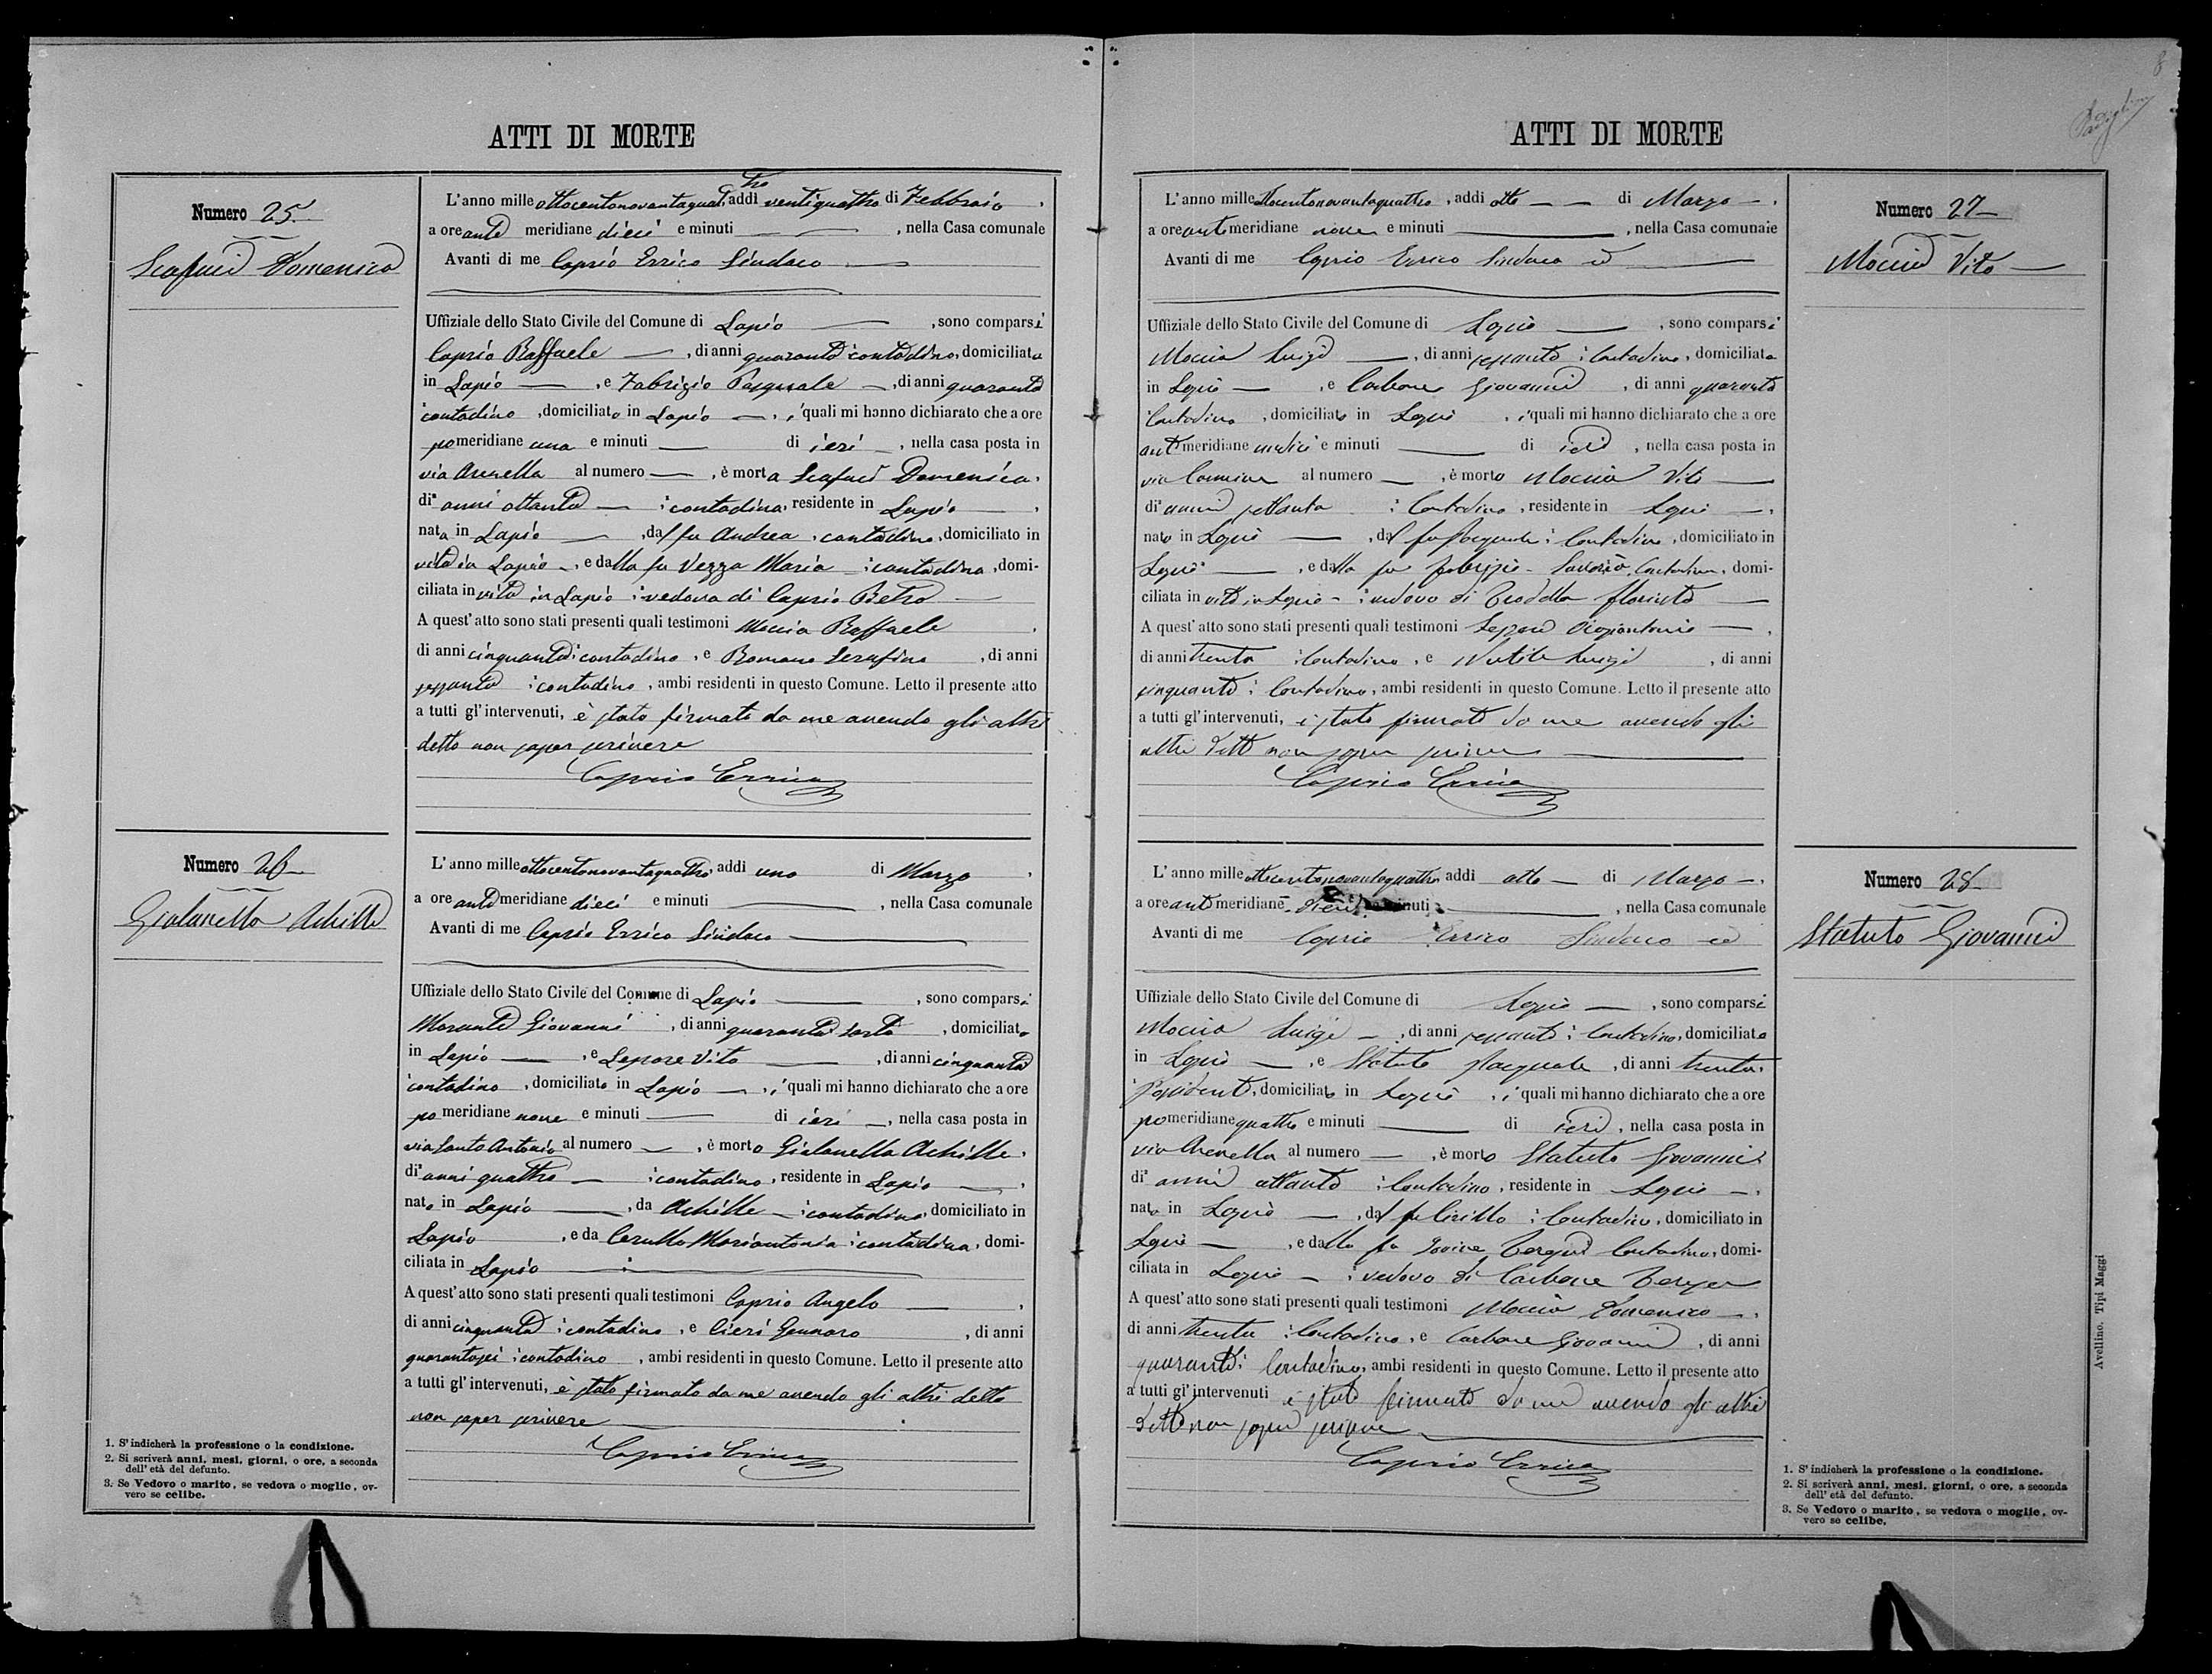 8
ATTI DI MORTE
Numero 25
Scafuri Domenica
L'anno mille ottocentonovantaquattro, addì ventiquattro di Febbraio,
a ore ante meridiane dieci e minuti — , nella Casa comunale
Avanti di me Caprio Errico Sindaco —
Uffiziale dello Stato Civile del Comune di Lapio — , sono comparsi
Caprio Raffaele — , di anni quaranta contadino, domiciliato
in Lapio — , e Fabrizio Pasquale — , di anni quaranta
contadino , domiciliato in Lapio — , i quali mi hanno dichiarato che a ore
pomeridiane una e minuti — di ieri — , nella casa posta in
via Arenella al numero — , è morta Scafuri Domenica,
di anni ottanta — contadina, residente in Lapio — ,
nata in Lapio — , dal fu Andrea , contadino, domiciliato in
vita in Lapio — , e dalla fu Vezza Maria — contadina , domi-
ciliata in vita in Lapio vedova di Caprio Petro —
A quest' atto sono stati presenti quali testimoni Moccia Raffaele ,
di anni cinquanta contadino , e Romano Serafino , di anni
sessanta contadino , ambi residenti in questo Comune. Letto il presente atto
a tutti gl' intervenuti, è stato firmato da me avendo gli altri
detto non saper scrivere
Caprio Errico
Numero 26
Gialanella Achille
L' anno mille ottocentonovantaquattro addì uno di Marzo ,
a ore ante meridiane dieci e minuti — , nella Casa comunale
Avanti di me Caprio Errico Sindaco —
Uffiziale dello Stato Civile del Comune di Lapio — , sono comparsi
Morante Giovanni , di anni quaranta sarto , domiciliato
in Lapio — , e Lepore Vito — , di anni cinquanta
contadino , domiciliato in Lapio — , i quali mi hanno dichiarato che a ore
po meridiane nove e minuti — di ieri — , nella casa posta in
via Santo Antonio al numero — , è morto Gialanella Achille ,
di anni quattro — contadino , residente in Lapio — ,
nato in Lapio — , da Achille — contadino, domiciliato in
Lapio , e da Cerullo Mariantonia contadina , domi-
ciliata in Lapio —
A quest' atto sono stati presenti quali testimoni Caprio Angelo — ,
di anni cinquanta contadino , e Cieri Gennaro , di anni
quarantasei contadino , ambi residenti in questo Comune. Letto il presente atto
a tutti gl' intervenuti, è stato firmato da me avendo gli altri detto
non saper scrivere —
Caprio Errico
1. S' indicherà la professione o la condizione.
2. Si scriverà anni, mesi, giorni, o ore, a seconda
dell' età del defunto.
3. Se Vedovo o marito, se vedova o moglie, ov-
vero se celibe.
ATTI DI MORTE
Numero 27
Moccia Vito —
L' anno mille ottocentonovantaquattro , addì otto — di Marzo — ,
a ore anti meridiane nove e minuti — , nella Casa comunale
Avanti di me Caprio Errico Sindaco ed —
Uffiziale dello Stato Civile del Comune di Lapio — , sono comparsi
Moccia Luigi — , di anni sessanta contadino , domiciliato
in Lapio — , e Carbone Giovanni , di anni quaranta
contadino , domiciliato in Lapio , i quali mi hanno dichiarato che a ore
anti meridiane undici e minuti — di ieri , nella casa posta in
via Carmine al numero — , è morto Moccia Vito —
di anni settanta contadino , residente in Lapio — ,
nato in Lapio — , dal fu Pasquale contadino , domiciliato in
Lapio — , e dalla fu Fabrizio contadina , domi-
ciliata in vita in Lapio — vedovo di —
A quest' atto sono stati presenti quali testimoni Lepore — ,
di anni trenta contadino , e Nutile Luigi , di anni
cinquanta contadino , ambi residenti in questo Comune. Letto il presente atto
a tutti gl' intervenuti, è stato firmato da me avendo gli
altri detto non saper scrivere —
Caprio Errico
Numero 28
Statuto Giovanni
L' anno mille ottocentonovantaquattro addì otto — di Marzo — ,
a ore anti meridiane dieci e minuti — , nella Casa comunale
Avanti di me Caprio Errico Sindaco ed
Uffiziale dello Stato Civile del Comune di Lapio — , sono comparsi
Moccia Luigi — , di anni sessanta contadino , domiciliato
in Lapio — , e Statuto Pasquale , di anni trenta ,
possidente , domiciliato in Lapio , i quali mi hanno dichiarato che a ore
pomeridiane quattro e minuti — di ieri , nella casa posta in
via Arenella al numero — , è morto Statuto Giovanni
di anni ottanta contadino , residente in Lapio — ,
nato in Lapio — , dal fu Cirillo contadino , domiciliato in
Lapio — , e dalla fu contadina , domi-
ciliata in Lapio — vedovo di Carbone
A quest' atto sono stati presenti quali testimoni Moccia Domenico — ,
di anni trenta contadino , e Carbone Giovanni , di anni
quaranta contadino , ambi residenti in questo Comune. Letto il presente atto
a tutti gl' intervenuti è stato firmato da me avendo gli altri
detto non saper scrivere —
Caprio Errico
1. S' indicherà la professione o la condizione.
2. Si scriverà anni, mesi, giorni, o ore, a seconda
dell' età del defunto.
3. Se Vedovo o marito, se vedova o moglie, ov-
vero se celibe.
Avellino, Tipi Maggi